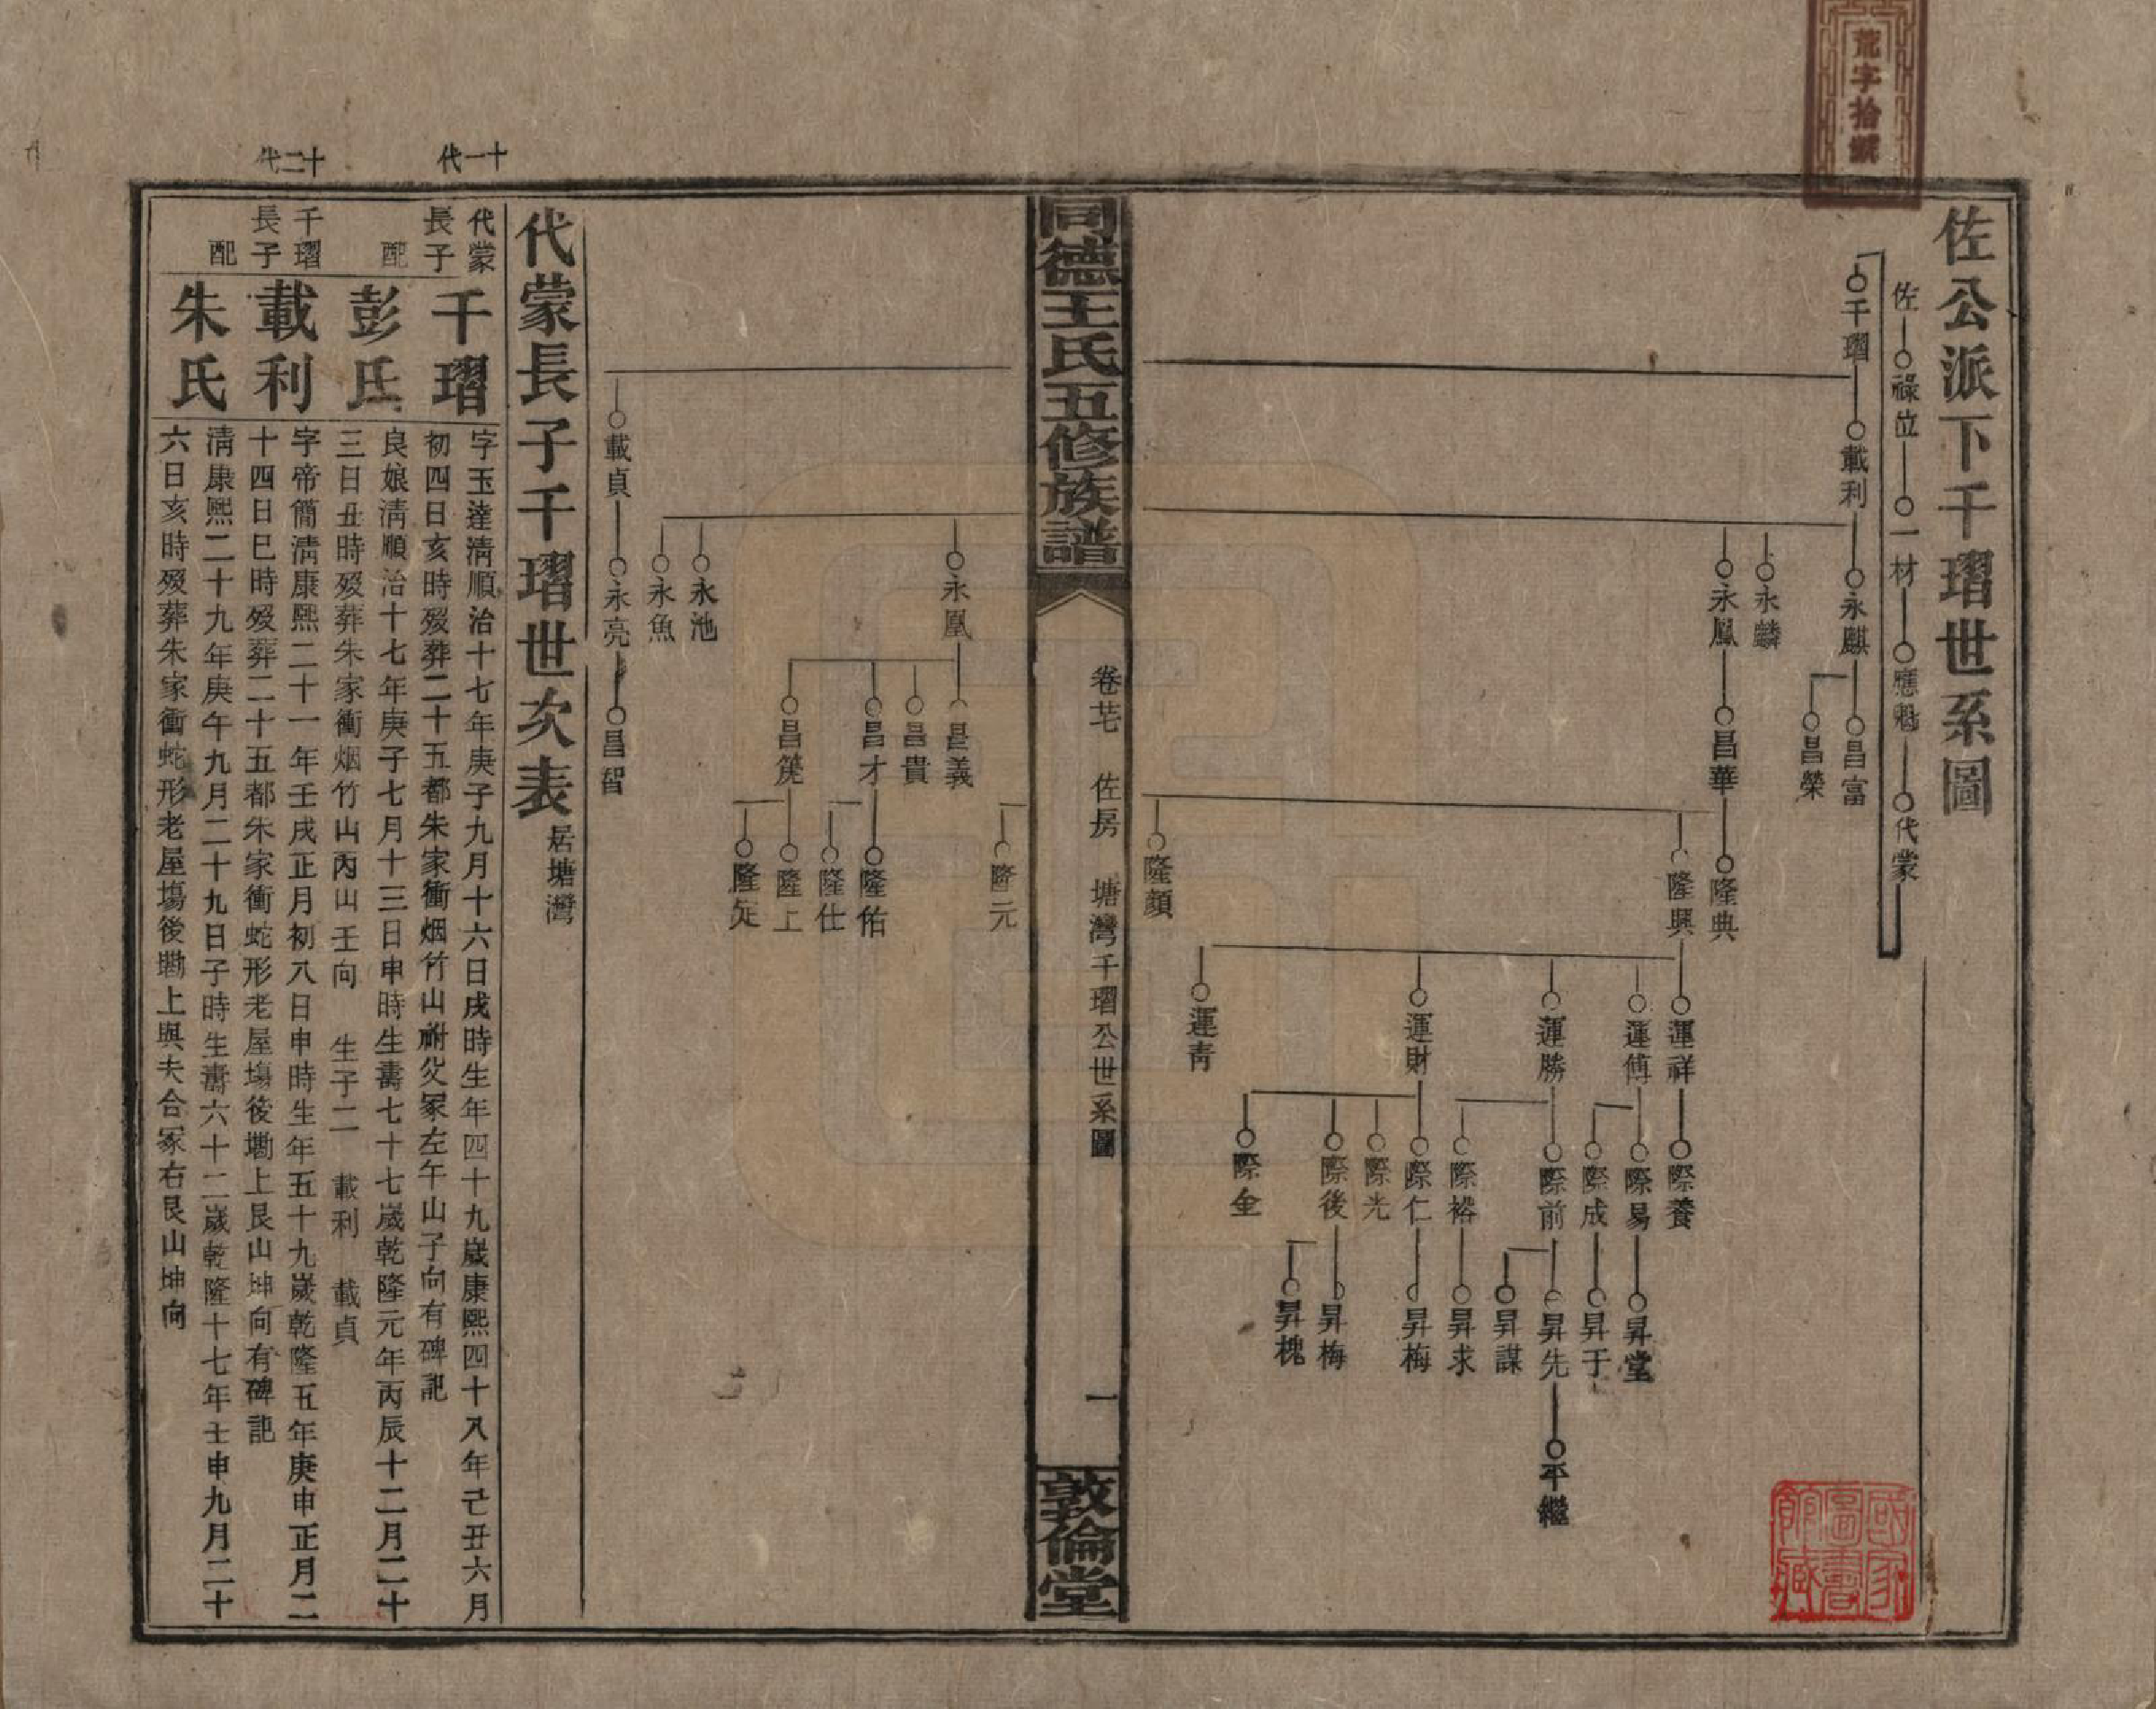 荒字拾號
佐公派下千瑠世系圖
佐 祿位 一材 應魁 代蒙
千瑠 載利 永麒 昌富
昌榮
永麟
永鳳 昌華 隆典
隆興 運祥 際養
運傅 際易 昇堂
際成 昇于
運勝 際前 昇先 平繼
昇謀
際裕 昇求
運財 際仁 昇梅
際光
際後 昇梅
昇槐
際全
運青
隆顏
同德王氏五修族譜
卷芼 佐房 塘灣千瑠公世系圖 一
敦倫堂
隆元
永凰 昌義
昌貴
昌才 隆佑
隆仕
昌筦 隆上
隆定
永池
永魚
載貞 永亮 昌智
代蒙長子千瑠世次表 居塘灣
十一代
代蒙長子 千瑠 字玉達清順治十七年庚子九月十六日戌時生年四十九歲康熙四十八年己丑六月
初四日亥時歿葬二十五都朱家衝烟竹山祔父冢左午山子向有碑記
配 彭氏 良娘清順治十七年庚子七月十三日申時生壽七十七歲乾隆元年丙辰十二月二十
三日丑時歿葬朱家衝烟竹山丙山壬向 生子二 載利 載貞
十二代
千瑠長子 載利 字帝簡清康熙二十一年壬戌正月初八日申時生年五十九歲乾隆五年庚申正月二
十四日巳時歿葬二十五都朱家衝蛇形老屋塲後墈上艮山坤向有碑記
配 朱氏 清康熙二十九年庚午九月二十九日子時生壽六十二歲乾隆十七年壬申九月二十
六日亥時歿葬朱家衝蛇形老屋塲後墈上與夫合冢右艮山坤向
國家圖書館藏